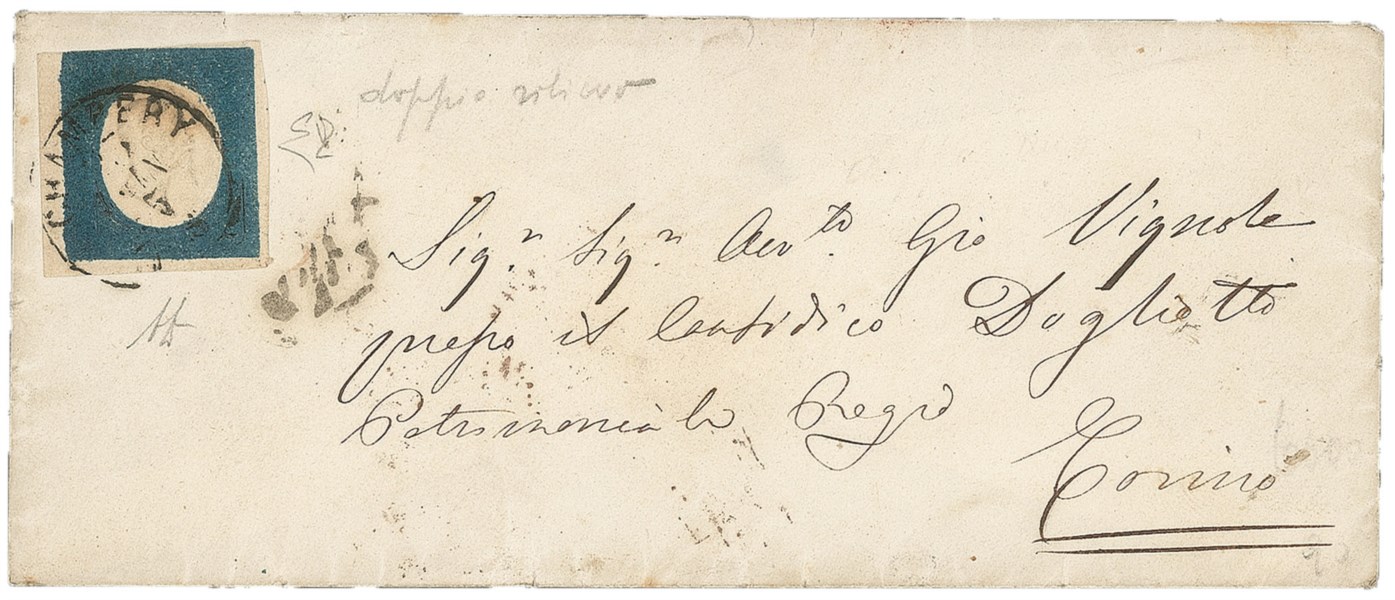 CHAMBERY
doppio rilievo
Sig.r Sig.r Avv.to Gio Vignola
presso il Causidico Dogliotto
Patrimoniale Regio
Torino